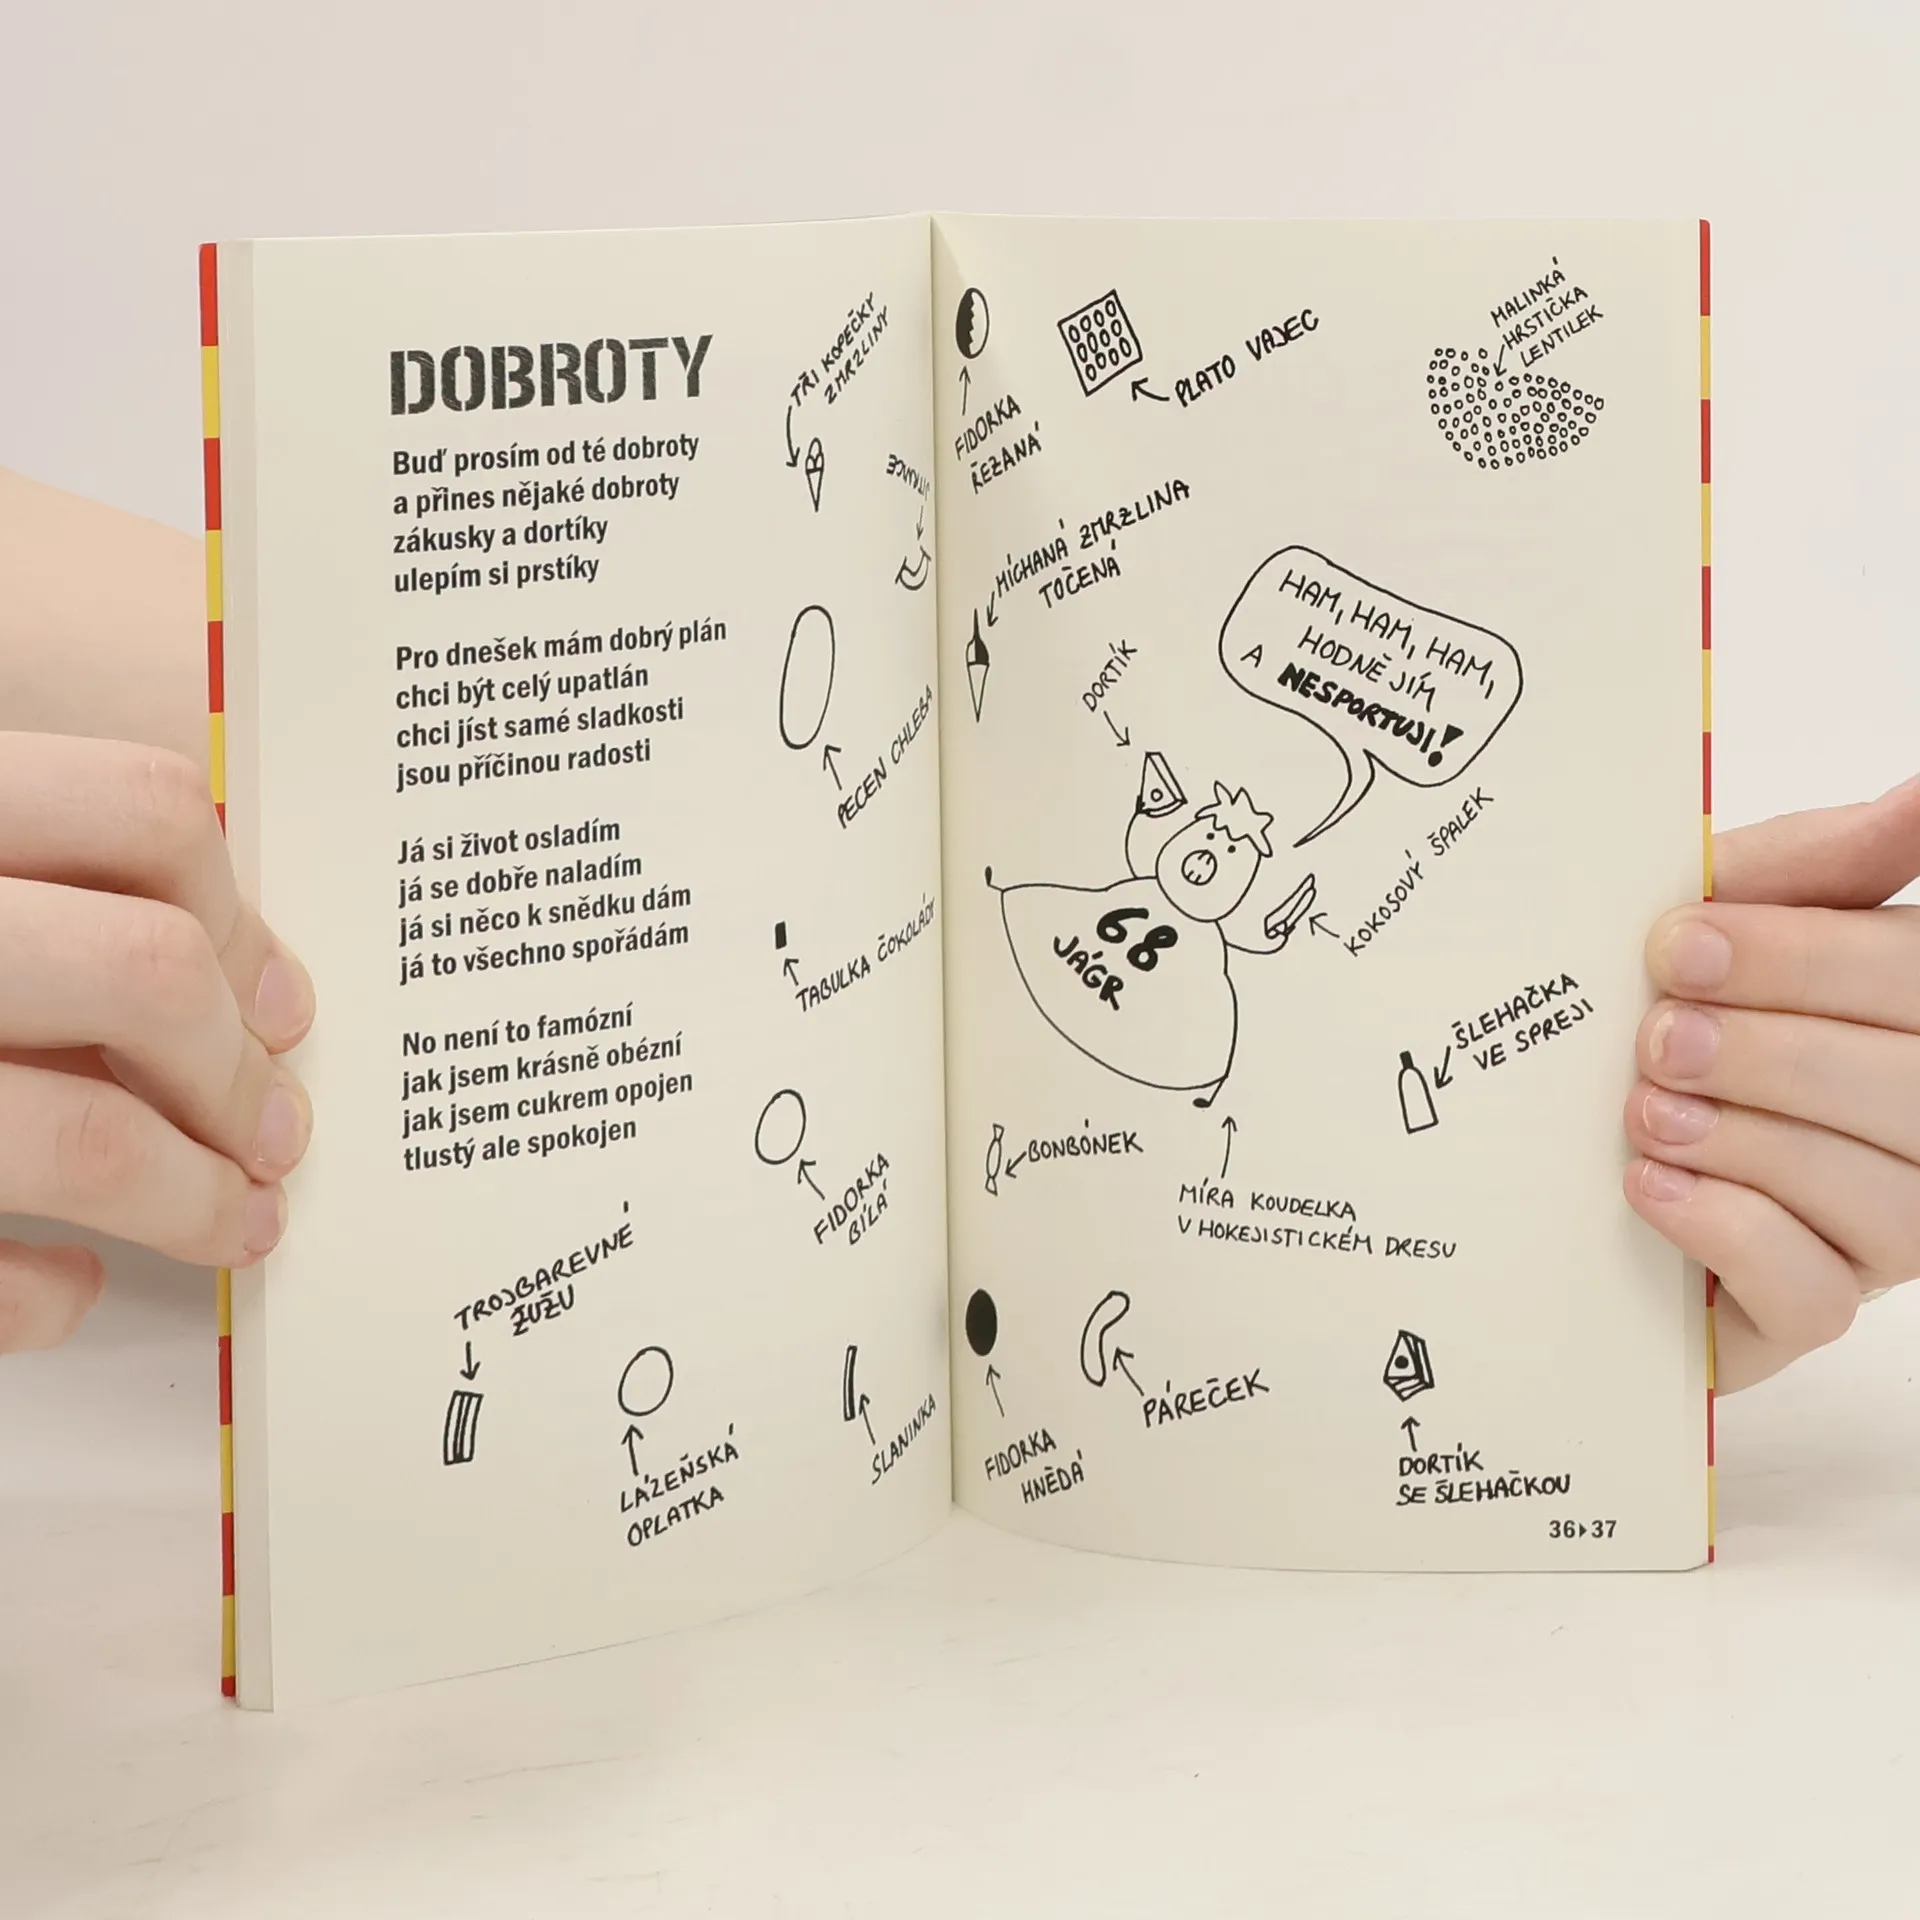 DOBROTY
Buď prosím od té dobroty
a přines nějaké dobroty
zákusky a dortíky
ulepím si prstíky
Pro dnešek mám dobrý plán
chci být celý upatlán
chci jíst samé sladkosti
jsou příčinou radosti
Já si život osladím
já se dobře naladím
já si něco k snědku dám
já to všechno spořádám
No není to famózní
jak jsem krásně obézní
jak jsem cukrem opojen
tlustý ale spokojen
TŘI KOPEČKY
ZMRZLINY
JITRNICE
PECEN CHLEBA
TABULKA ČOKOLÁDY
FIDORKA
BÍLÁ
TROJBAREVNÉ
ŽUŽU
LÁZEŇSKÁ
OPLATKA
SLANINKA
FIDORKA
ŘEZANÁ
PLATO VAJEC
MALINKÁ
HRSTIČKA
LENTILEK
MÍCHANÁ ZMRZLINA
TOČENÁ
DORTÍK
HAM, HAM, HAM,
HODNĚ JÍM
A NESPORTUJI!
KOKOSOVÝ ŠPALEK
68
JÁGR
ŠLEHAČKA
VE SPREJI
BONBÓNEK
MÍRA KOUDELKA
V HOKEJISTICKÉM DRESU
FIDORKA
HNĚDÁ
PÁREČEK
DORTÍK
SE ŠLEHAČKOU
36▸37